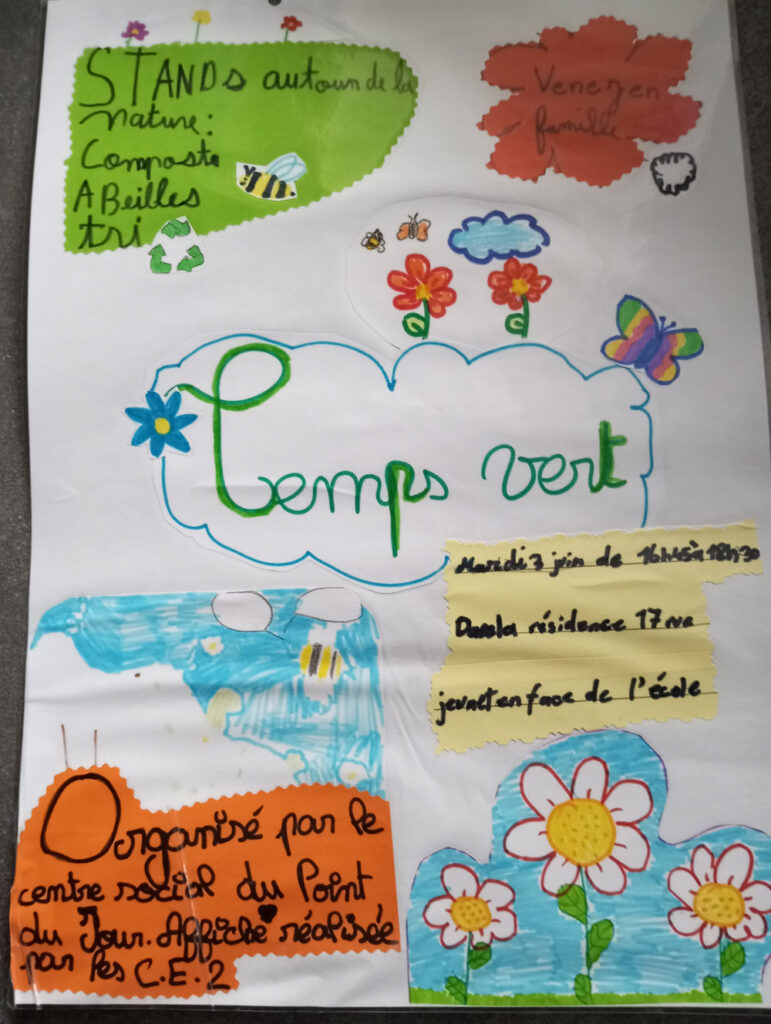 STANDS autour de la
nature:
Composte
ABeilles
tri
Venez en
famille
Temps vert
Mardi 3 juin de 16h45 à 18h30
Dans la résidence 17 rue
jeunet en face de l'école
Organisé par le
centre social du Point
du Jour. Affiche réalisée
par les C.E.2